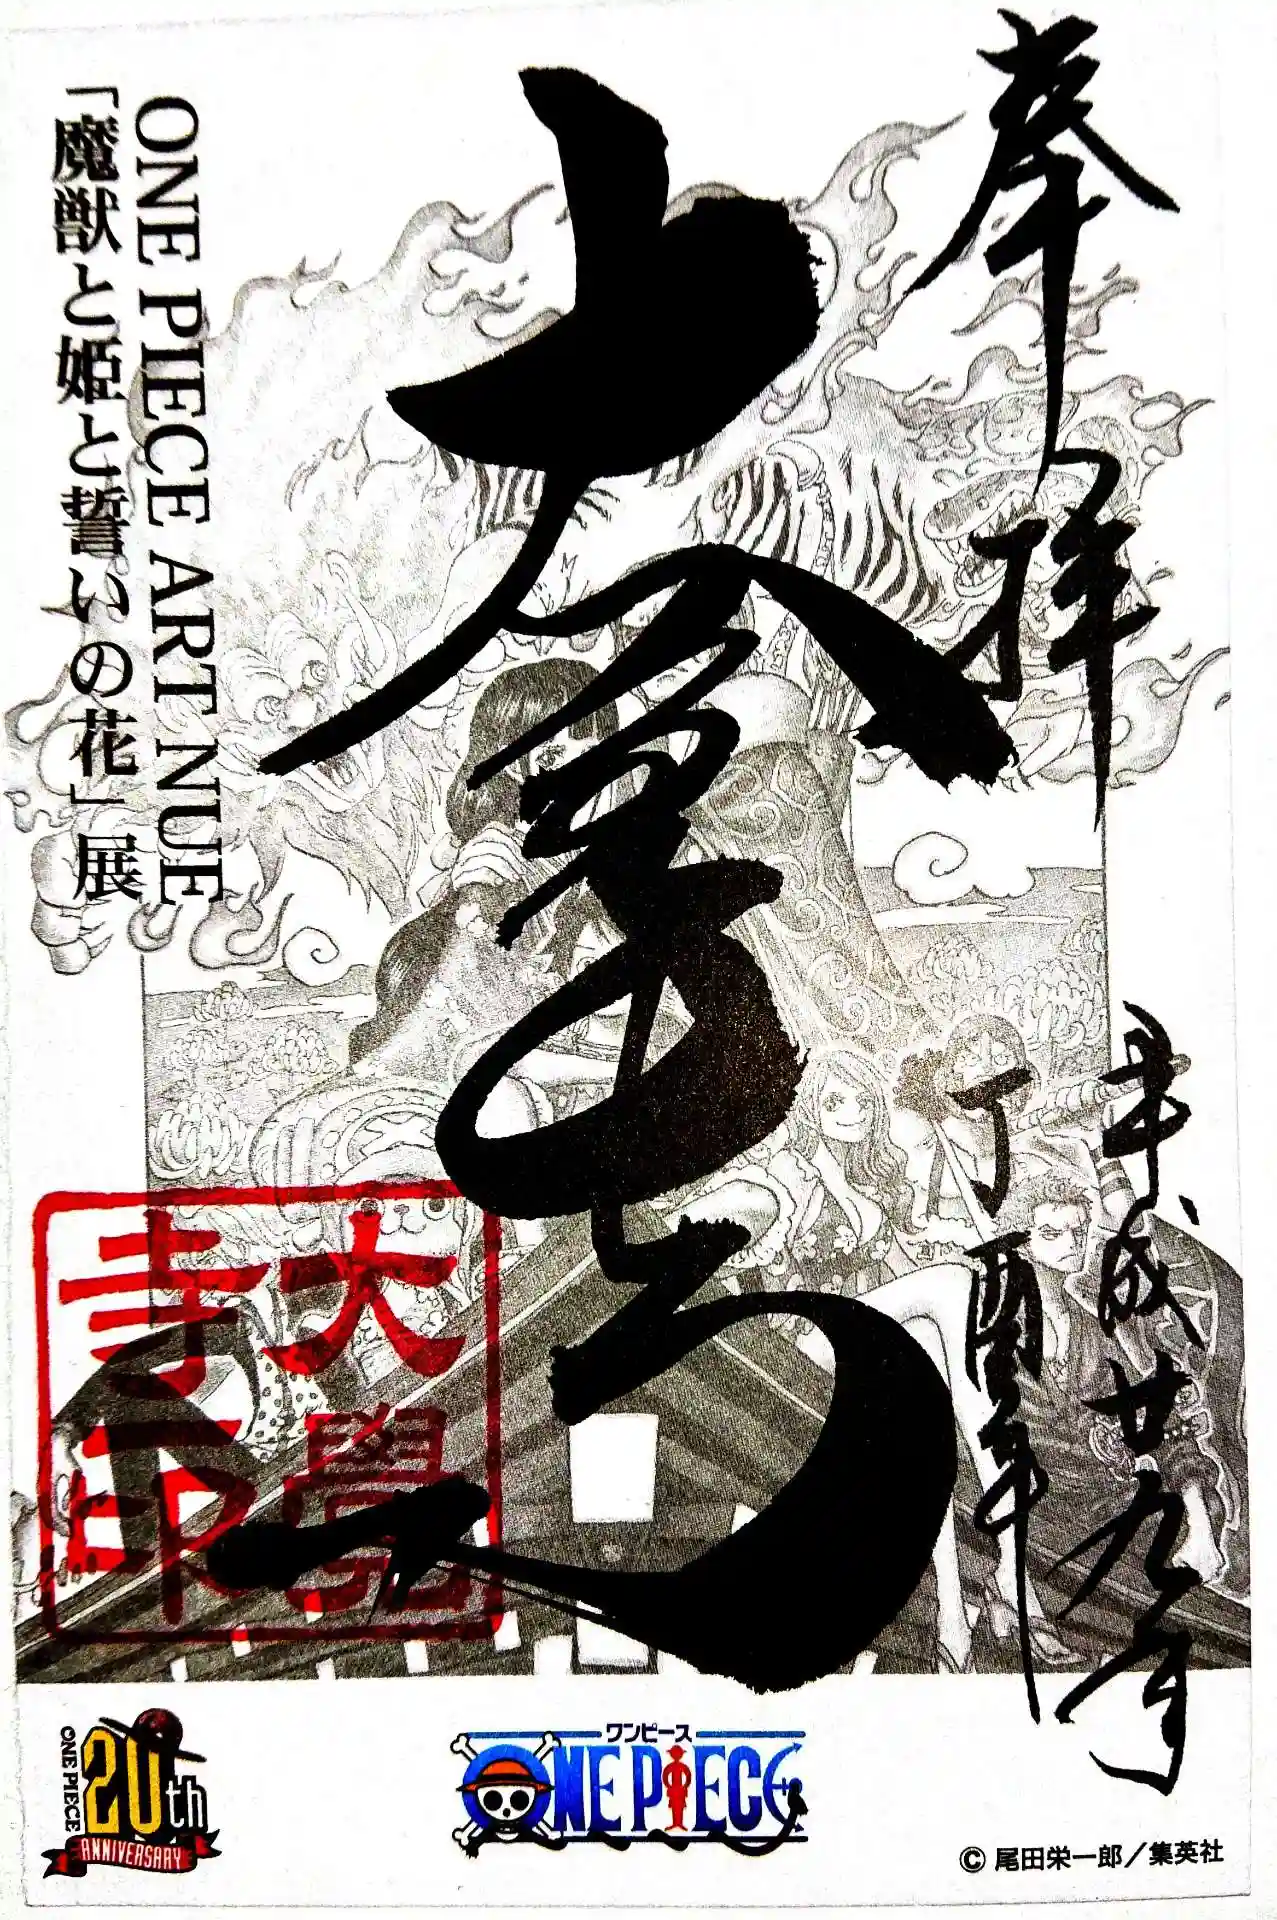 奉拝
平成廿九年
丁酉年
大覚寺
ONE PIECE ART NUE
「魔獣と姫と誓いの花」展
大覺
寺印
ONE PIECE
20th
ANNIVERSARY
ワンピース
ONE PIECE
© 尾田栄一郎／集英社